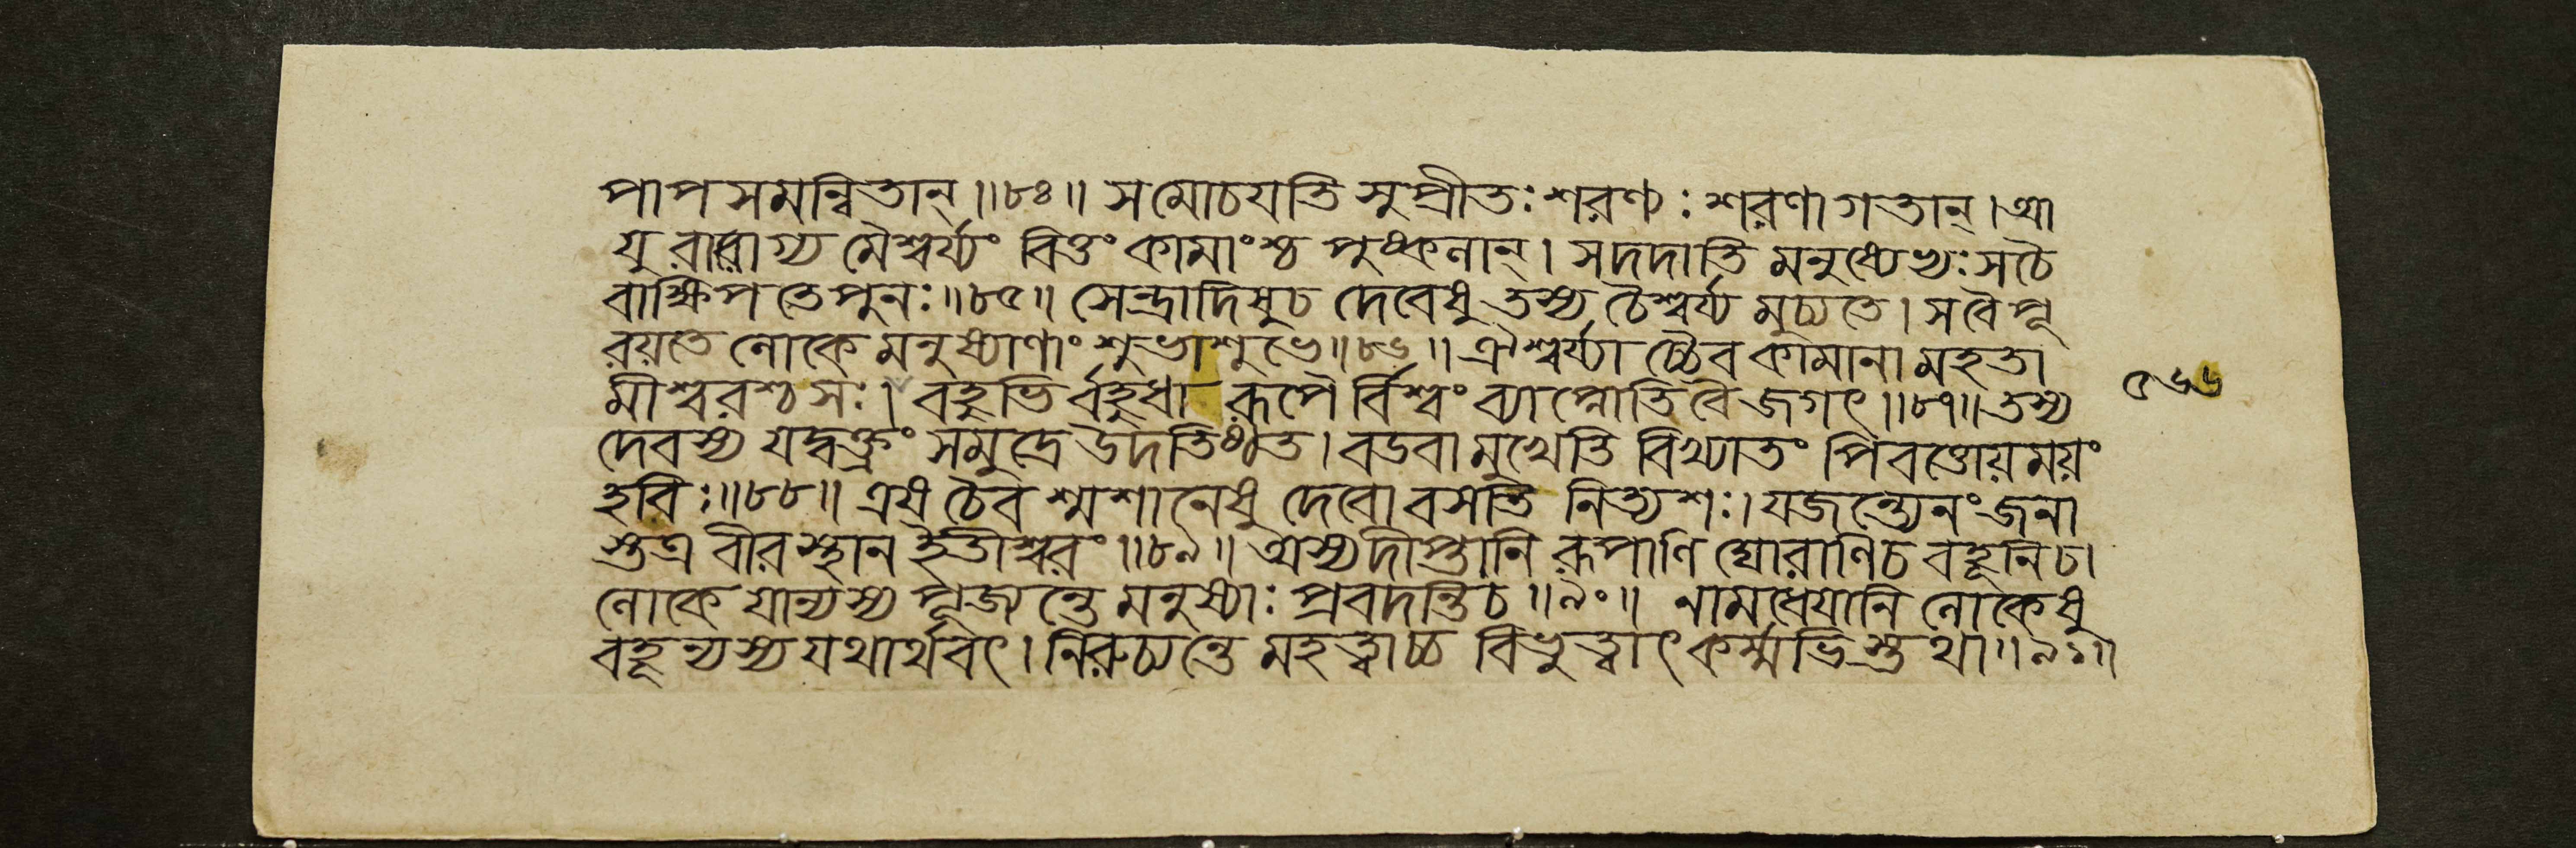 পাপসমন্বিতান্॥৮৪॥ সমোচযতি সুপ্রীতঃ শরণ্যঃ শরণাগতান্।আ
যুরারোগ্য মৈশ্বর্য্যং বিত্তং কামাংশ্চ পুষ্কলান্। সদদাতি মনুষ্যেভ্যঃ সচৈ
বাক্ষিপতে পুনঃ॥৮৫॥ সেন্দ্রাদিষুচ দেবেষু তস্য চৈশ্বর্য্য মুচ্যতে। সবৈ পূ
রয়তে লোকে মনুষ্যাণাং শুভাশুভে॥৮৬॥ ঐশ্বর্য্যা চ্চৈব কামানা মহতা
মীশ্বরশ্চ সঃ। বহুভির্বহুধা রূপৈর্বিশ্বং ব্যাপ্নোতি বৈ জগৎ॥৮৭॥ তস্য
দেবস্য যদ্বক্ত্রং সমুদ্রে তদতিষ্ঠত। বডবামুখেতি বিখ্যাতং পিবত্তোয়ময়ং
হবিঃ॥৮৮॥ এষ চৈব শ্মশানেষু দেবো বসতি নিত্যশঃ। যজন্ত্যেনং জনা
স্তত্র বীরস্থান ইতীশ্বরং॥৮৯॥ অস্যদীপ্তানি রূপাণি ঘোরাণিচ বহূনিচ।
লোকে যান্যস্য পূজ্যন্তে মনুষ্যাঃ প্রবদন্তিচ॥৯০॥ নামধেযানি লোকেষু
বহূন্যস্য যথার্থবৎ। নিরুচ্যন্তে মহত্ত্বাচ্চ বিভুত্বাৎ কর্ম্মভিস্তথা॥৯১॥
৫৬৬